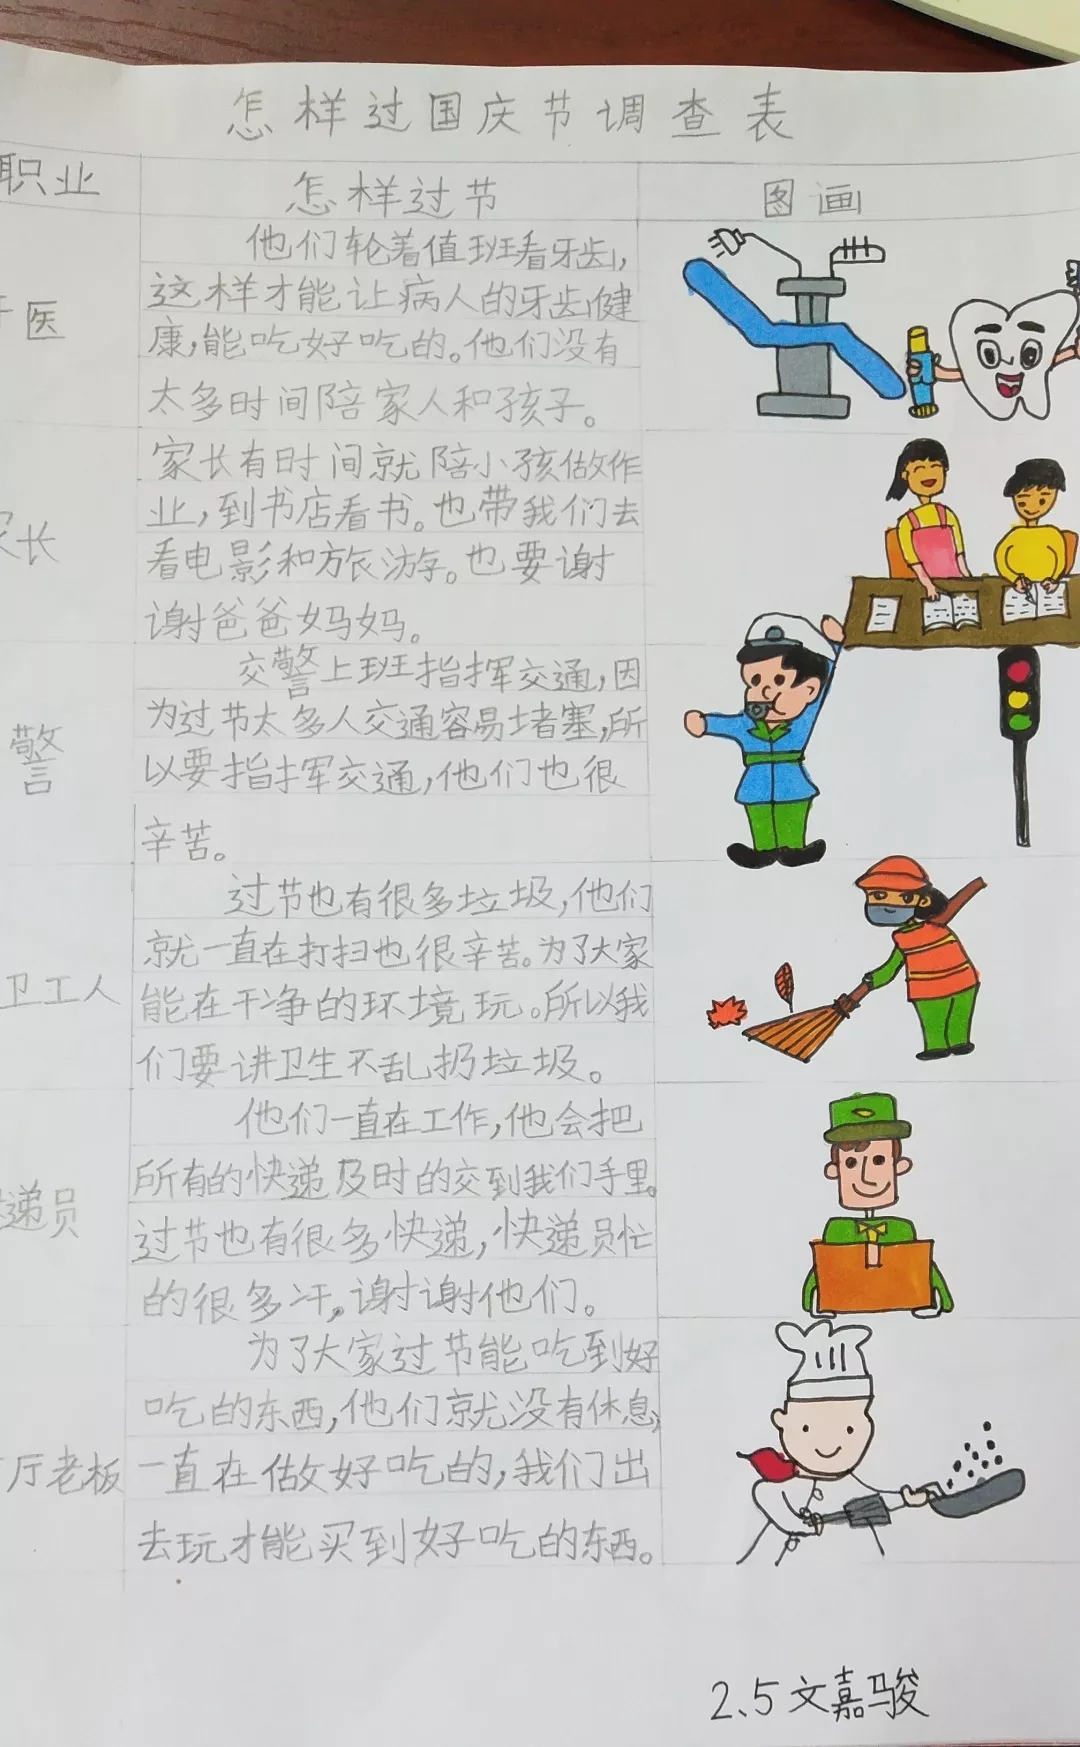 怎样过国庆节调查表
职业
怎样过节
图画
医
他们轮着值班看牙齿,
这样才能让病人的牙齿健
康,能吃好吃的。他们没有
太多时间陪家人和孩子。
长
家长有时间就陪小孩做作
业,到书店看书。也带我们去
看电影和旅游。也要谢
谢爸爸妈妈。
警
交警上班指挥交通,因
为过节太多人交通容易堵塞,所
以要指挥交通,他们也很
辛苦。
卫工人
过节也有很多垃圾,他们
就一直在打扫也很辛苦。为了大家
能在干净的环境玩。所以我
们要讲卫生不乱扔垃圾。
递员
他们一直在工作,他会把
所有的快递及时的交到我们手里。
过节也有很多快递,快递员忙
的很多汗,谢谢他们。
厅老板
为了大家过节能吃到好
吃的东西,他们就没有休息,
一直在做好吃的,我们出
去玩才能买到好吃的东西。
2.5文嘉骏